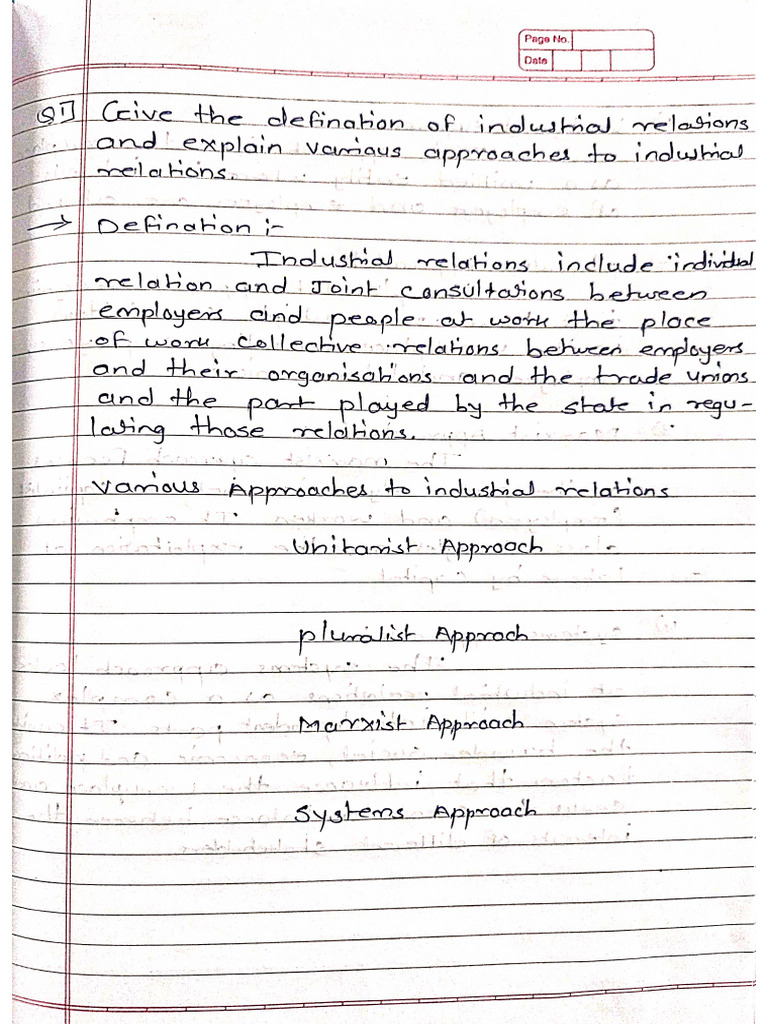 Page No.
Date
Q1] Give the defination of industrial relations
and explain various approaches to industrial
relations.
→ Defination :-
Industrial relations include individual
relation and Joint consultations between
employers and people at work the place
of work collective relations between employers
and their organisations and the trade unions
and the part played by the state in regu-
lating those relations.
Various Approaches to industrial relations
Unitarist Approach
pluralist Approach
Marxist Approach
Systems Approach